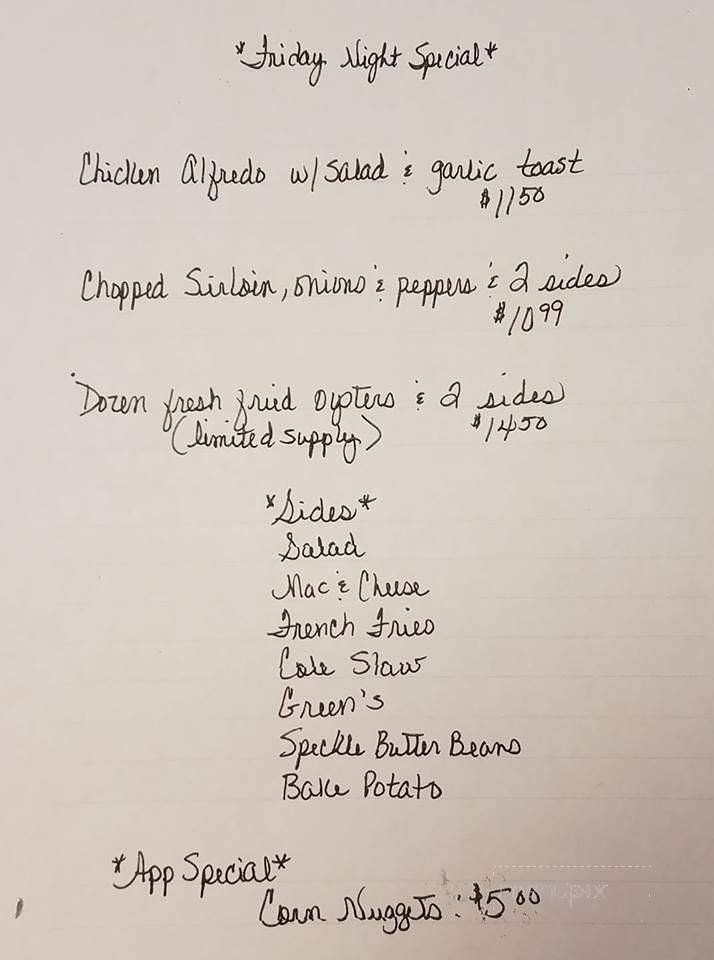 *Friday Night Special*
Chicken Alfredo w/ Salad & garlic toast
$11.50
Chopped Sirloin, onions & peppers & 2 sides
$10.99
Dozen fresh fried oysters & 2 sides
(limited supply) $14.50
*Sides*
Salad
Mac & Cheese
French Fries
Cole Slaw
Green's
Speckle Butter Beans
Bake Potato
*App Special*
Corn Nuggets : $5.00